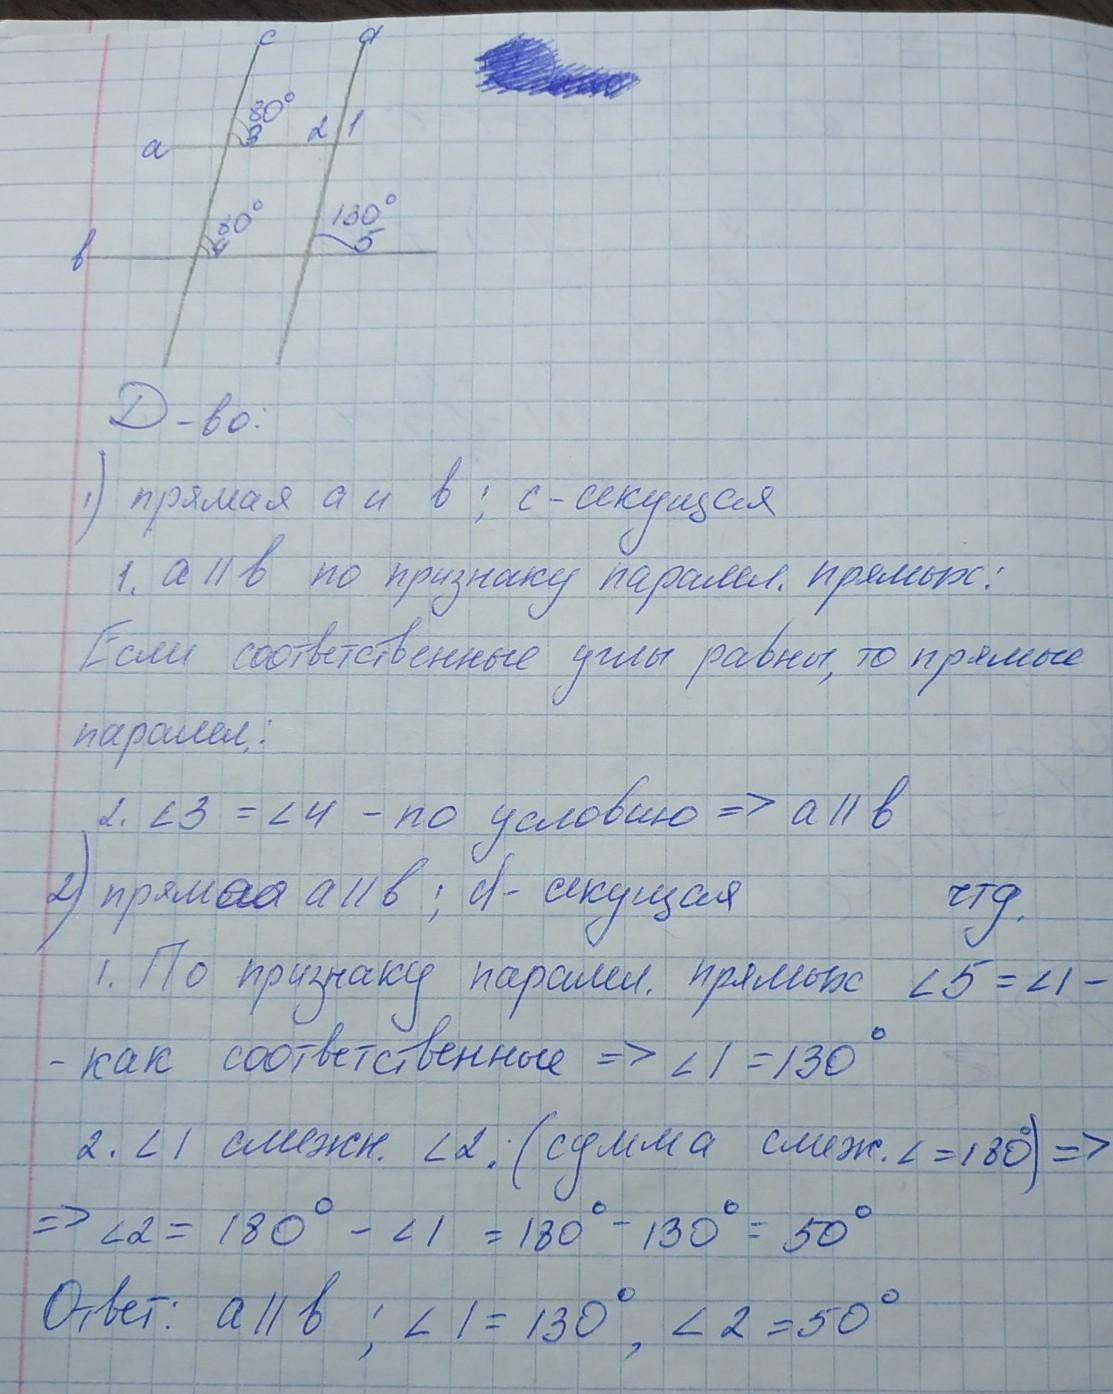 c d
80°
3 2 1
a
80° 130°
4 5
в
Д-во:
1) прямая a и в ; c - секущая
1. a || в по признаку паралл. прямых:
Если соответственные углы равны, то прямые
паралел.:
2. ∠3 = ∠4 - по условию => a || в
2) прямая a || в ; d - секущая чтд.
1. По признаку паралл. прямых ∠5 = ∠1 -
- как соответственные => ∠1 = 130°
2. ∠1 смежн. ∠2. (сумма смеж. ∠ = 180°) =>
=> ∠2 = 180° - ∠1 = 180° - 130° = 50°
Ответ: a || в ; ∠1 = 130°, ∠2 = 50°